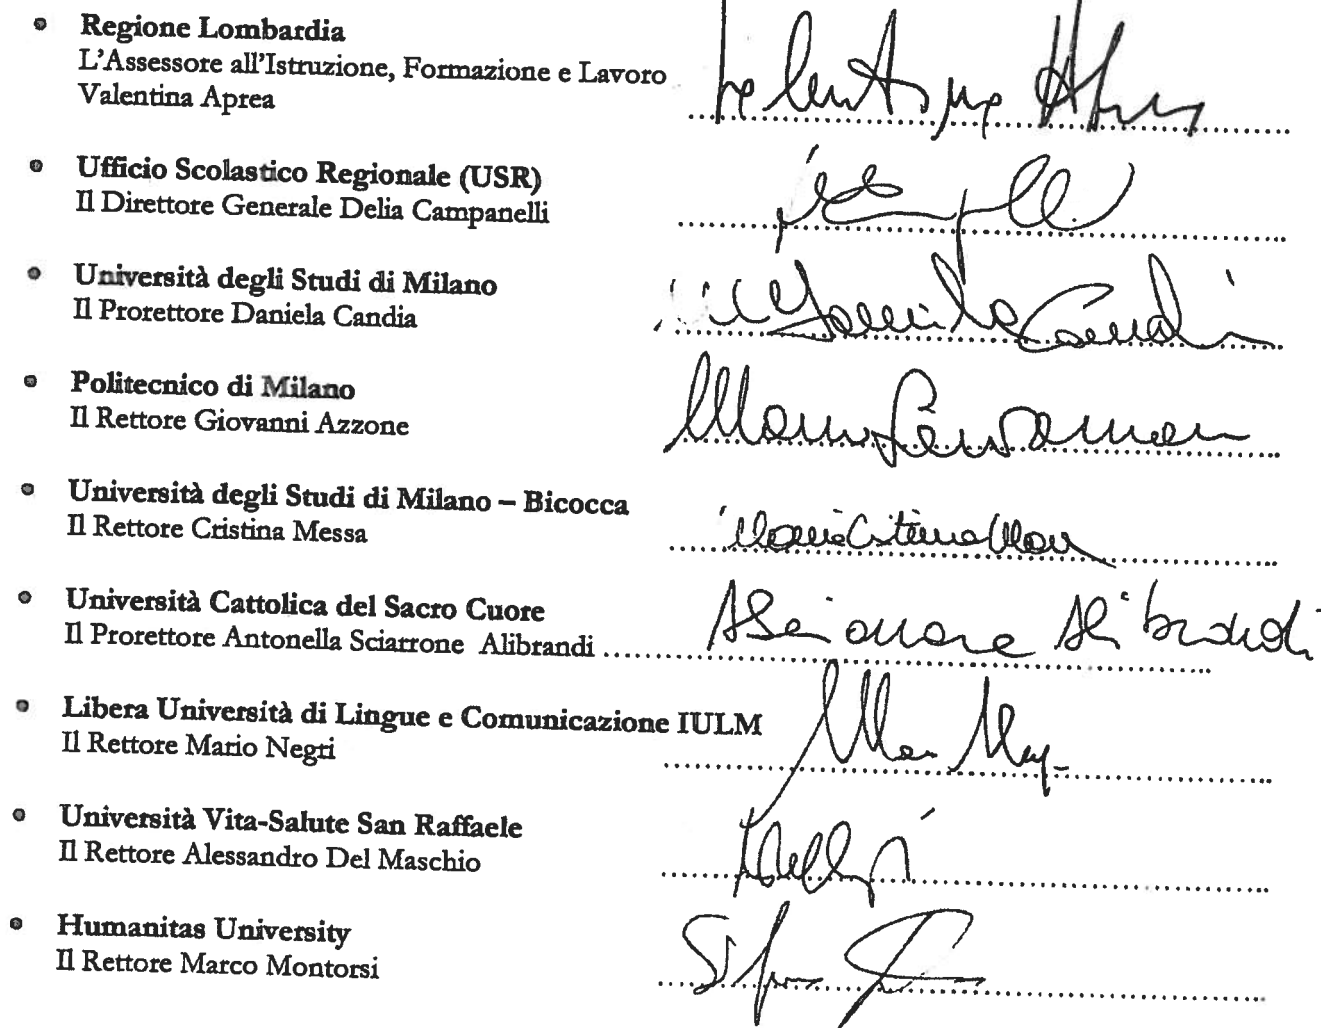 Regione Lombardia
L'Assessore all'Istruzione, Formazione e Lavoro
Valentina Aprea
Ufficio Scolastico Regionale (USR)
Il Direttore Generale Delia Campanelli
Università degli Studi di Milano
Il Prorettore Daniela Candia
Daniela Candia
Politecnico di Milano
Il Rettore Giovanni Azzone
Università degli Studi di Milano – Bicocca
Il Rettore Cristina Messa
Maria Cristina Messa
Università Cattolica del Sacro Cuore
Il Prorettore Antonella Sciarrone Alibrandi
A Sciarrone Alibrandi
Libera Università di Lingue e Comunicazione IULM
Il Rettore Mario Negri
Università Vita-Salute San Raffaele
Il Rettore Alessandro Del Maschio
Humanitas University
Il Rettore Marco Montorsi